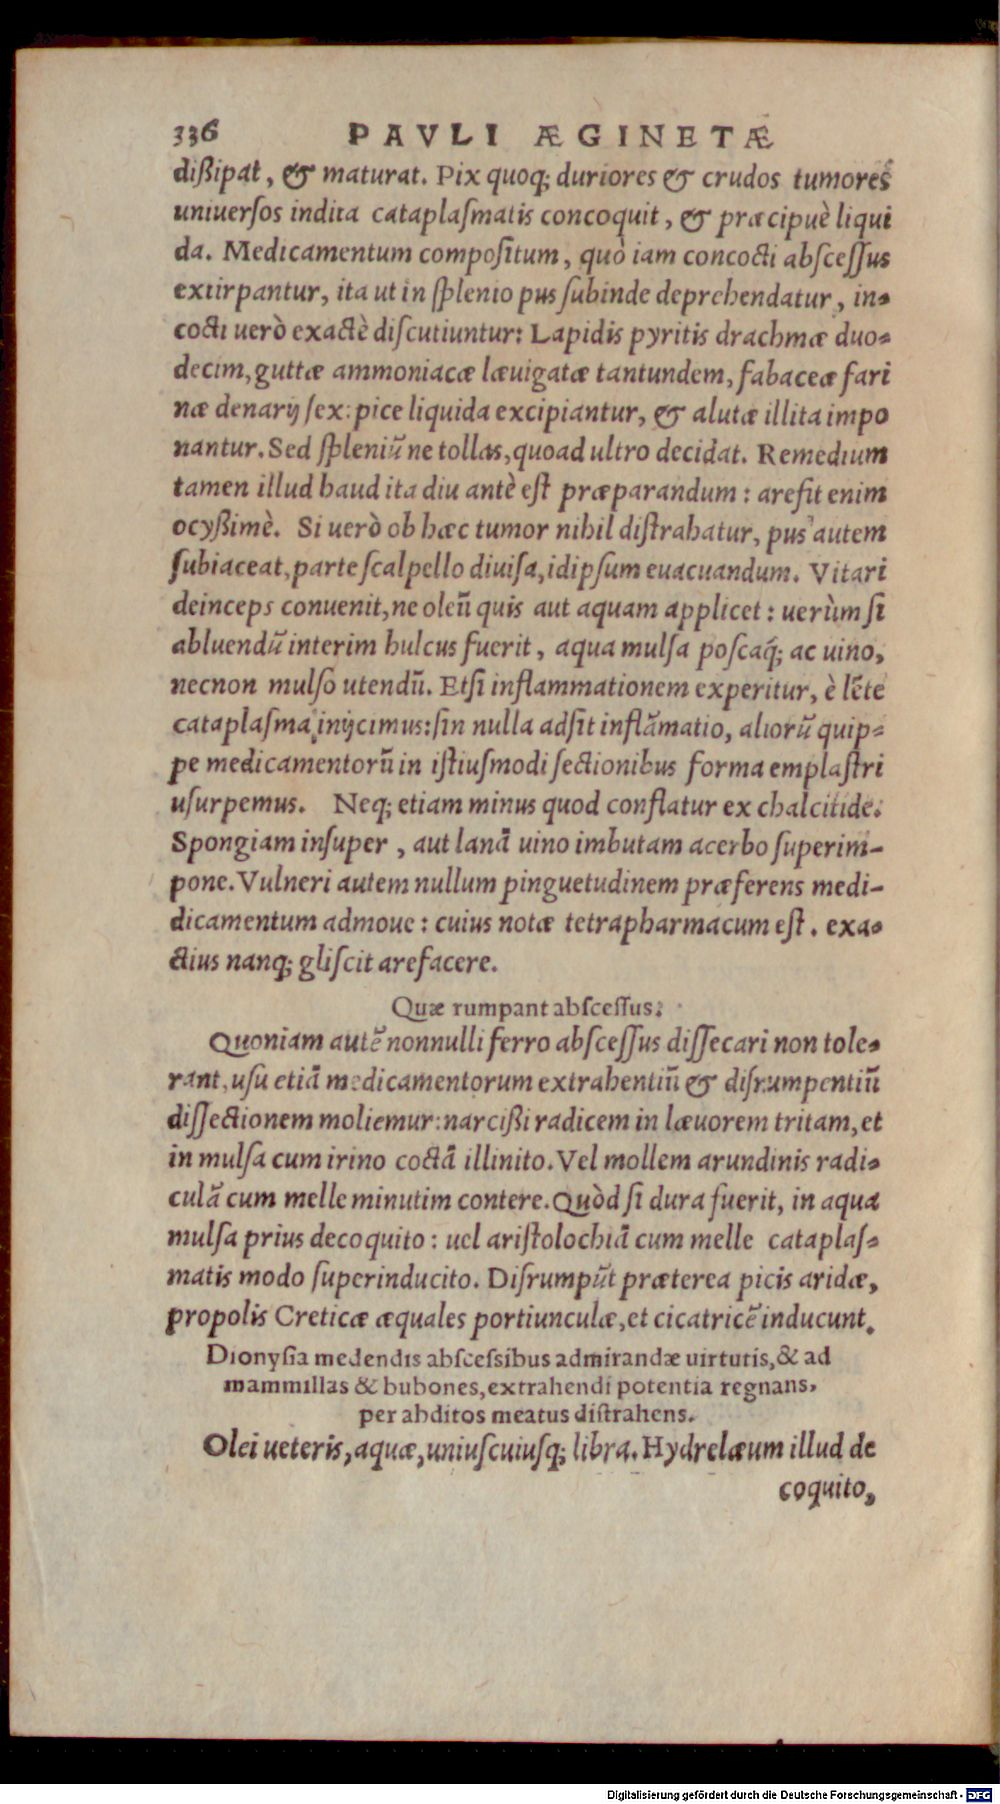 336 PAVLI ÆGINETÆ
dißipat, & maturat. Pix quoq; duriores & crudos tumores
uniuersos indita cataplaſmatis concoquit, & præcipuè liqui
da. Medicamentum compoſitum, quò iam concocti abſceſſus
extirpantur, ita ut in ſplenio pus ſubinde deprehendatur, in-
cocti uerò exactè diſcutiuntur: Lapidis pyritis drachmæ duo-
decim, guttæ ammoniacæ læuigatæ tantundem, fabaceæ fari
næ denarij ſex: pice liquida excipiantur, & alutæ illita impo
nantur. Sed ſpleniũ ne tollas, quoad ultro decidat. Remedium
tamen illud haud ita diu antè eſt præparandum: areſit enim
ocyßimè. Si uerò ob hæc tumor nihil diſtrahatur, pus autem
ſubiaceat, parte ſcalpello diuiſa, idipſum euacuandum. Vitari
deinceps conuenit, ne oleũ quis aut aquam applicet: uerùm ſi
abluendũ interim hulcus fuerit, aqua mulſa poſcaq́; ac uino,
necnon mulſo utendũ. Etſi inflammationem experitur, è lẽte
cataplaſma inijcimus: ſin nulla adſit inflãmatio, aliorũ quip-
pe medicamentorũ in iſtiuſmodi ſectionibus forma emplaſtri
uſurpemus. Neq; etiam minus quod conflatur ex chalcitide.
Spongiam inſuper, aut lanã uino imbutam acerbo ſuperim-
pone. Vulneri autem nullum pinguetudinem præferens medi-
dicamentum admoue: cuius notæ tetrapharmacum eſt. exa-
ctius nanq; gliſcit arefacere.
Quæ rumpant abſceſſus.
Quoniam autẽ nonnulli ferro abſceſſus diſſecari non tole-
rant, uſu etiã medicamentorum extrahentiũ & diſrumpentiũ
diſſectionem moliemur: narcißi radicem in læuorem tritam, et
in mulſa cum irino coctã illinito. Vel mollem arundinis radi-
culã cum melle minutim contere. Quòd ſi dura fuerit, in aqua
mulſa prius decoquito: uel ariſtolochiã cum melle cataplaſ-
matis modo ſuperinducito. Diſrumpũt præterea picis aridæ,
propolis Creticæ æquales portiunculæ, et cicatricẽ inducunt.
Dionyſia medendis abſceſsibus admirandæ uirtutis, & ad
mammillas & bubones, extrahendi potentia regnans,
per abditos meatus diſtrahens.
Olei ueteris, aquæ, uniuſcuiuſq; libra. Hydrelæum illud de
coquito,
Digitalisierung gefördert durch die Deutsche Forschungsgemeinschaft - DFG